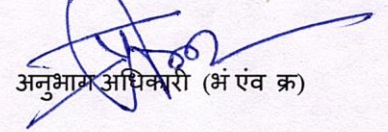 अनुभाग अधिकारी (भं एंव क्र)